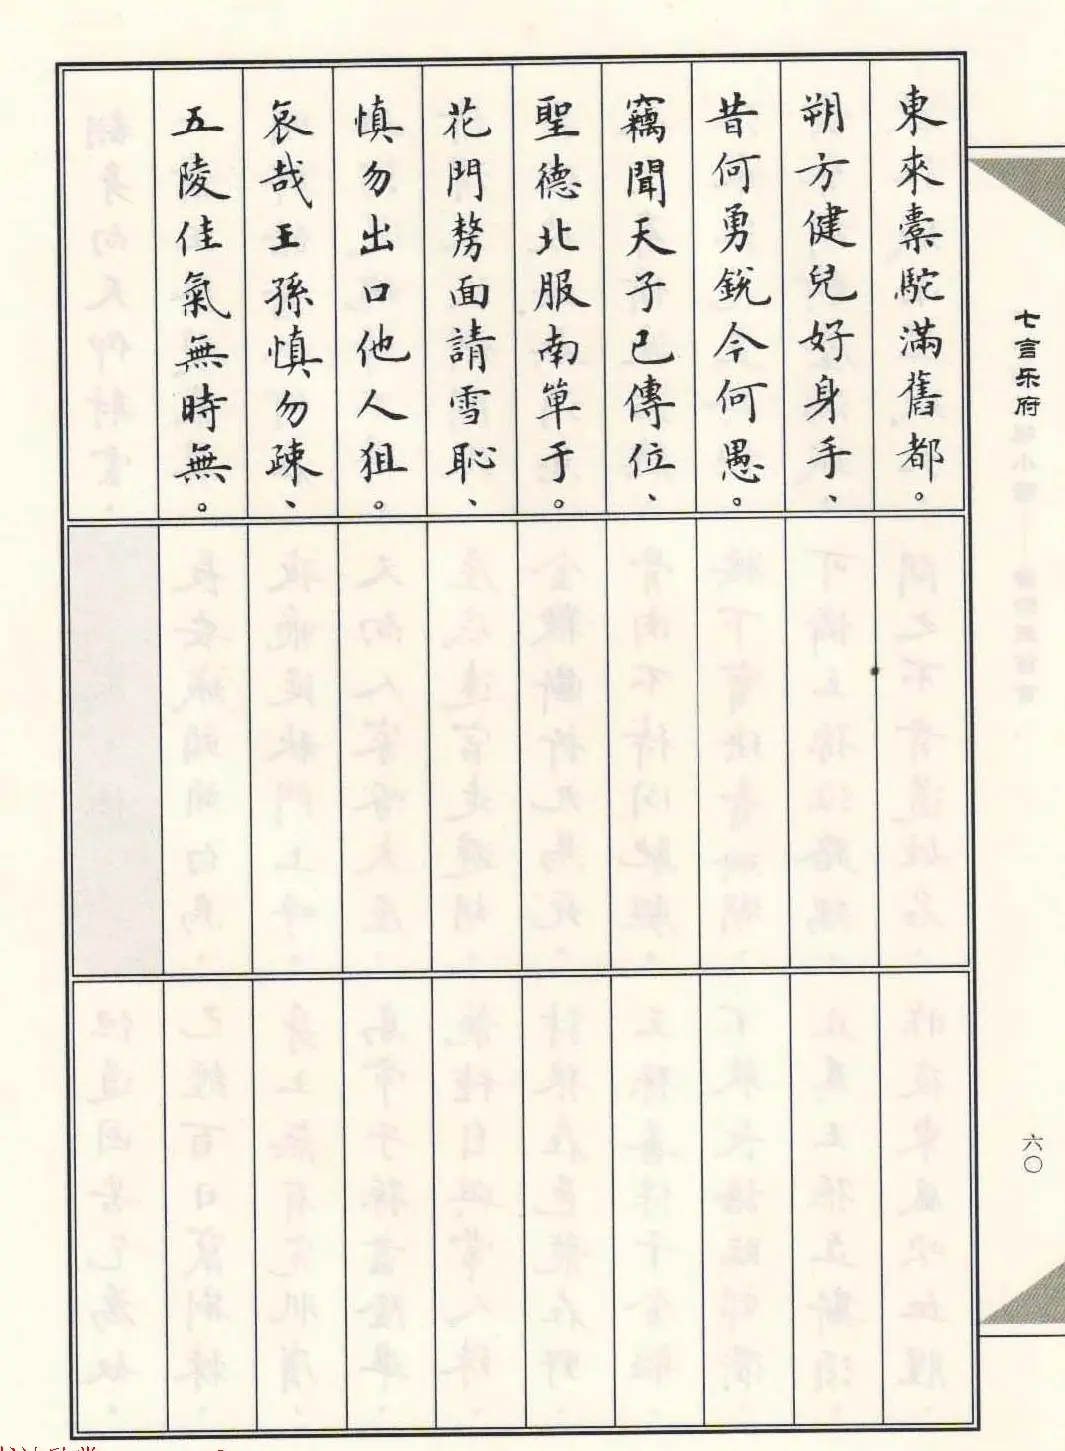 東來橐駝滿舊都。
朔方健兒好身手、
昔何勇銳今何愚。
竊聞天子已傳位、
聖德北服南單于。
花門剺面請雪恥、
慎勿出口他人狙。
哀哉王孫慎勿疎、
五陵佳氣無時無。
七言乐府
六〇